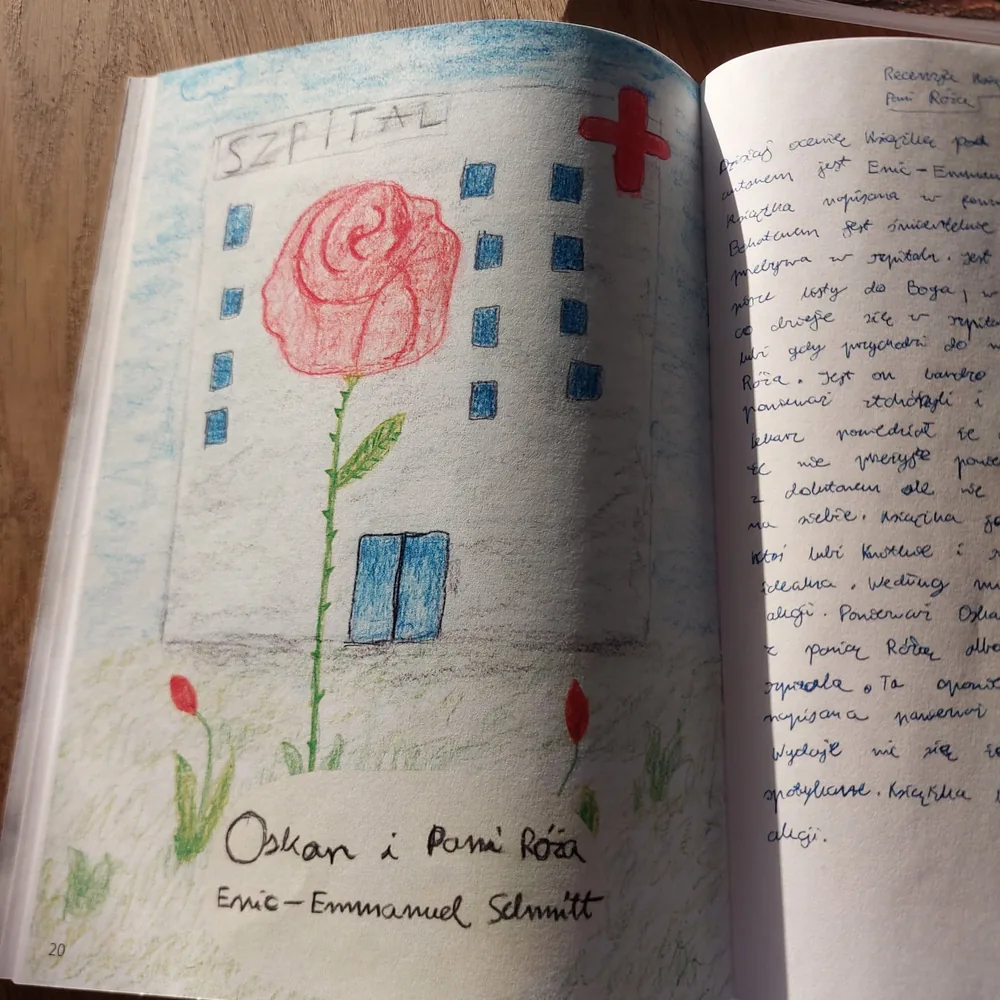 SZPITAL
Oskar i Pani Róża
Eric-Emmanuel Schmitt
20
Recenzja
Pani Róża
Dzisiaj ocenię książkę pod
autorem jest Eric-Emman
Książka napisana w
Bohaterem jest śmiertelnie
przebywa w szpitalu. Jest
pisze listy do Boga, w
co dzieje się w szpita
lubi gdy przychodzi do
Róża. Jest on bardzo
ponieważ stchórzyli i
lekarz powiedział że
że nie przeżyje ponie
z doktorem ale nie
na siebie. Książka je
Ktoś lubi krótkie i
idealna. Według
akcji. Ponieważ Oska
z panią Różą albo
szpitala. Ta opowie
napisana ponieważ
Wydaje mi się że
spotykane. Książka
akcji.